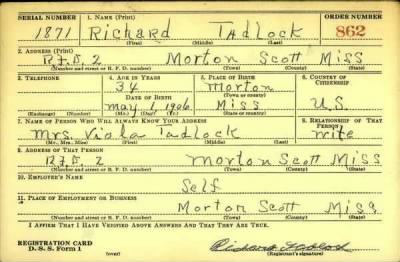 SERIAL NUMBER 1. NAME (Print) ORDER NUMBER
1871 Richard Tadlock 862
(First) (Middle) (Last)
2. ADDRESS (Print)
R.F.D. 2 Morton Scott Miss
(Number and street or R. F. D. number) (Town) (County) (State)
3. TELEPHONE 4. AGE IN YEARS 5. PLACE OF BIRTH 6. COUNTRY OF CITIZENSHIP
34 Morton
DATE OF BIRTH (Town or county)
May 1 1906 Miss U.S.
(Exchange) (No.) (Mo.) (Day) (Yr.) (State or country)
7. NAME OF PERSON WHO WILL ALWAYS KNOW YOUR ADDRESS 8. RELATIONSHIP OF THAT PERSON
Mrs. Viola Tadlock wife
(Mr., Mrs., Miss) (First) (Middle) (Last)
9. ADDRESS OF THAT PERSON
R.F.D. 2 Morton Scott Miss
(Number and street or R. F. D. number) (Town) (County) (State)
10. EMPLOYER'S NAME
Self
11. PLACE OF EMPLOYMENT OR BUSINESS
Morton Scott Miss
(Number and street or R. F. D. number) (Town) (County) (State)
I AFFIRM THAT I HAVE VERIFIED ABOVE ANSWERS AND THAT THEY ARE TRUE.
REGISTRATION CARD
D. S. S. Form 1 (over) Richard Tadlock
(Registrant's signature)